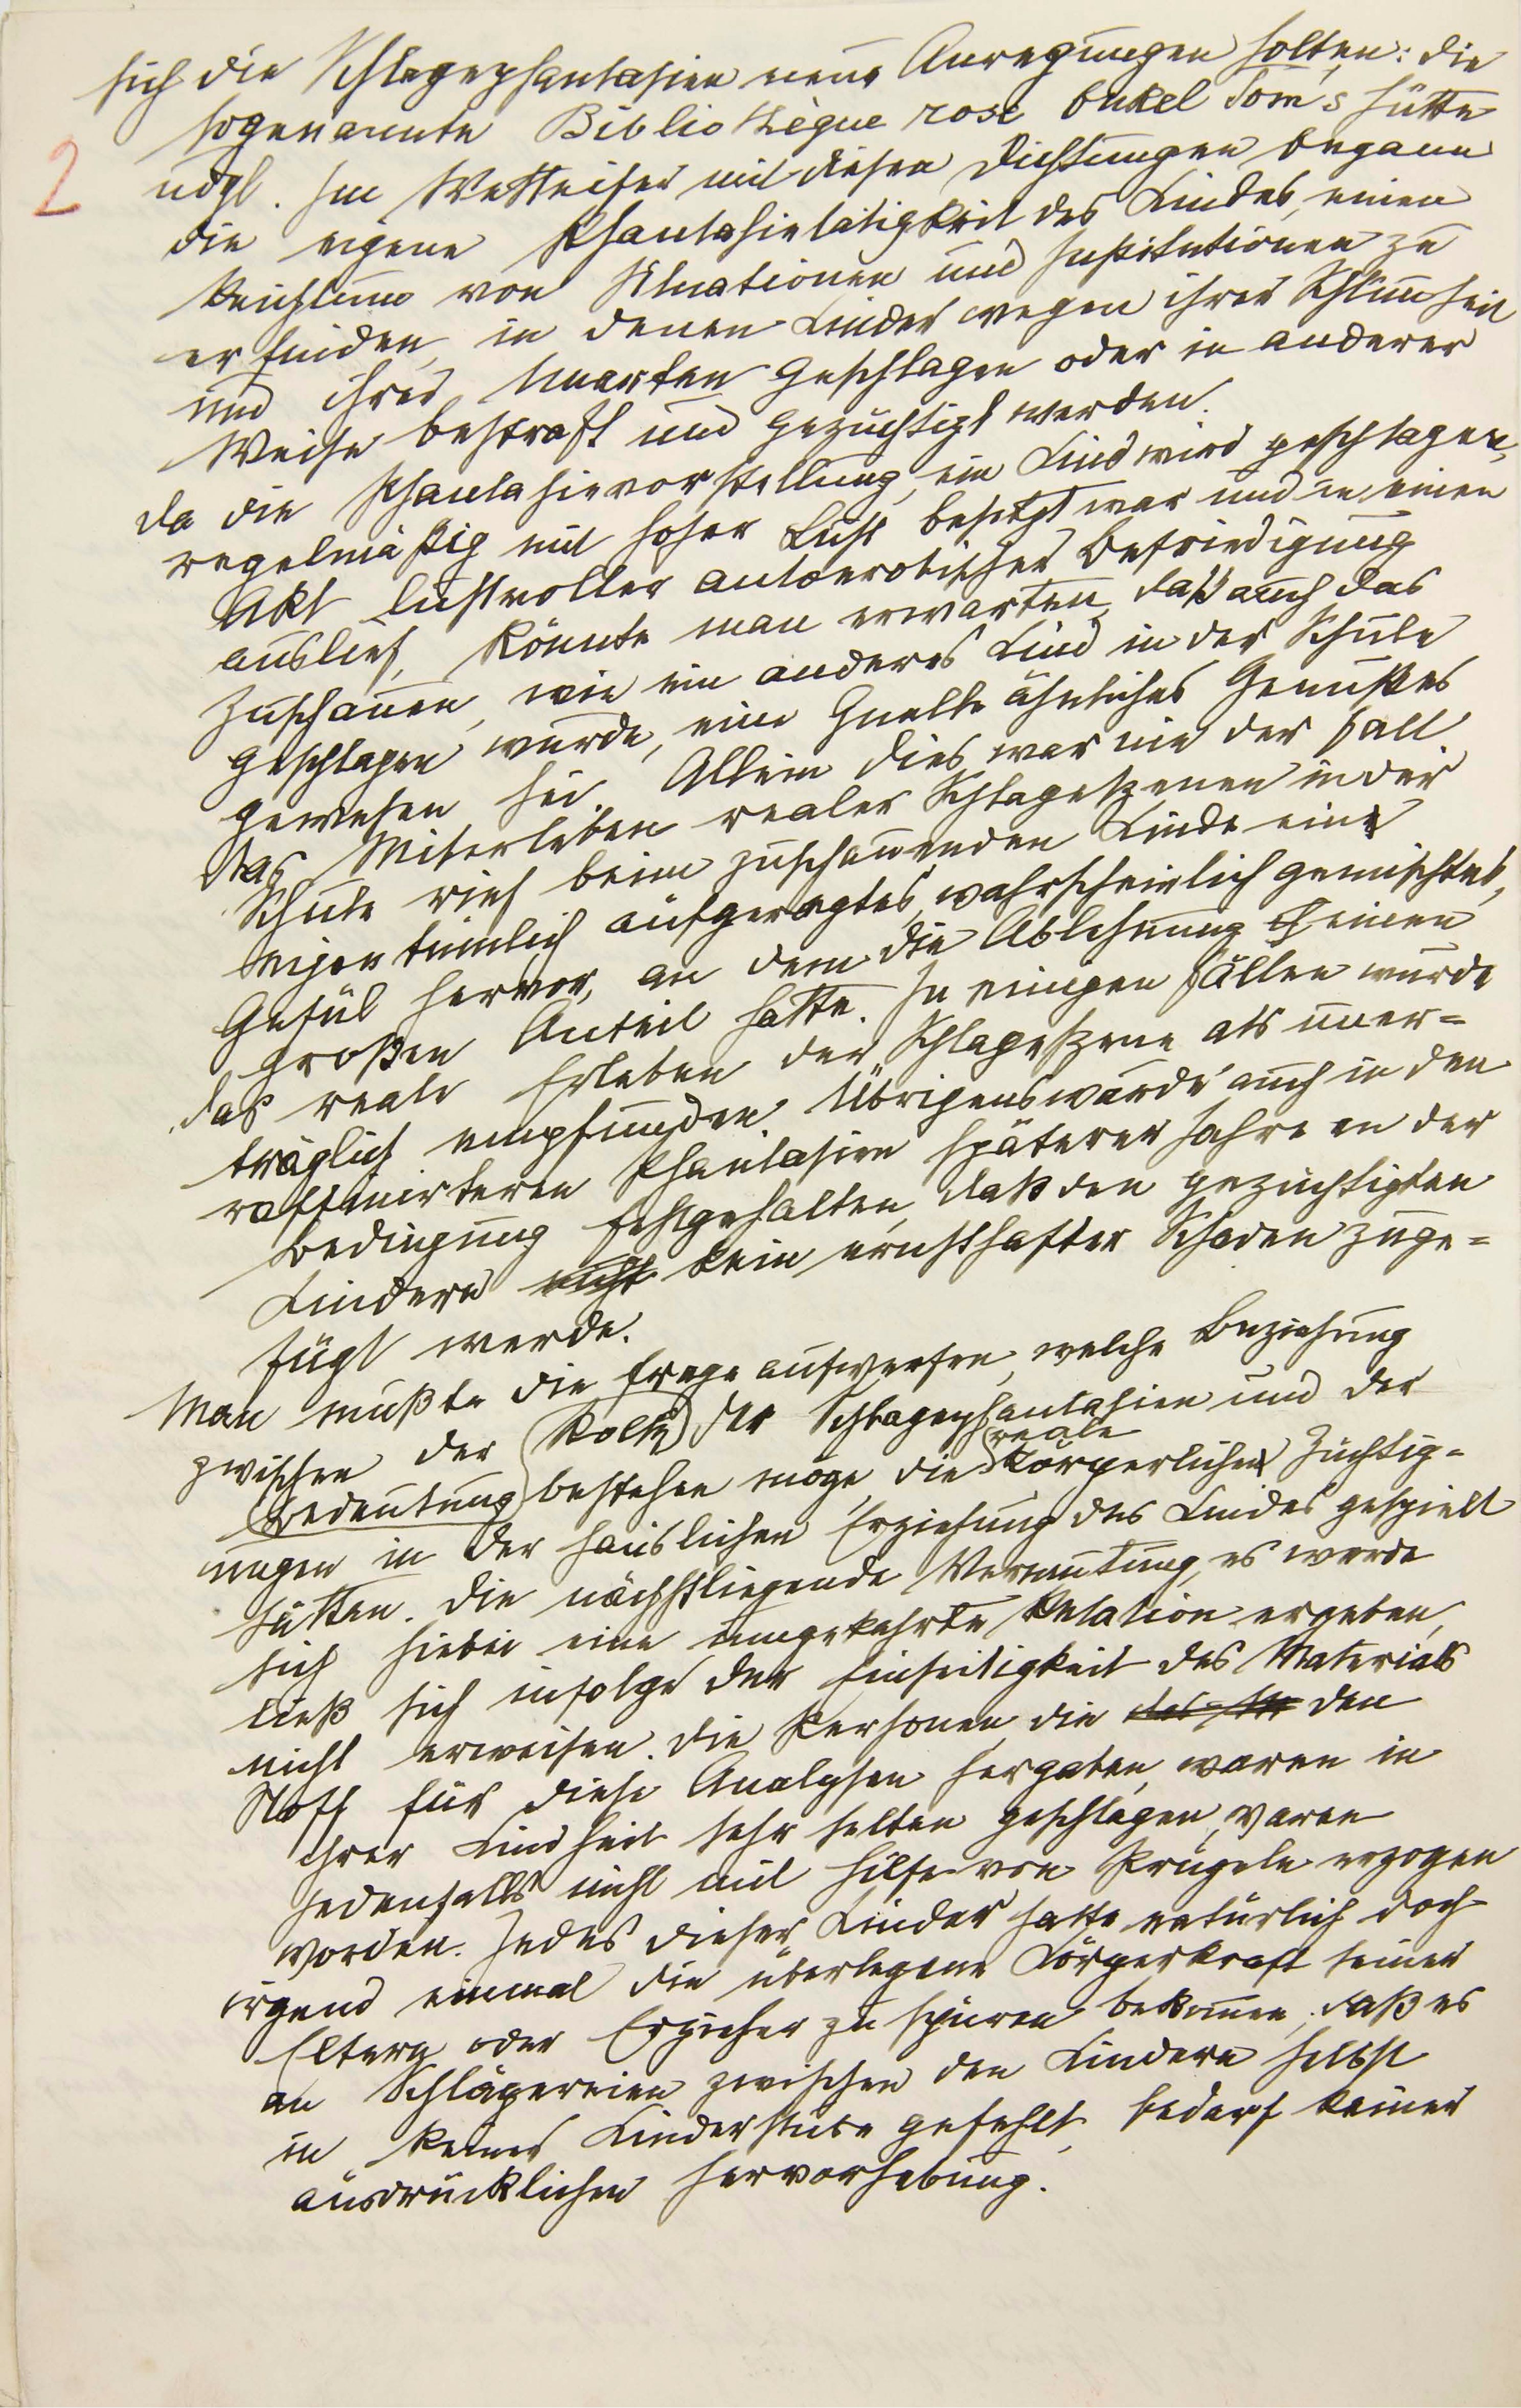 sich die Schlagephantasien neue Anregungen holten: die
sogenannte Bibliothèque rose Onkel Tom's Hütte
2
udgl. Im Wetteifer mit diesen Dichtungen begann
die eigene Phantasietätigkeit des Kindes, einen
Reichtum von Situationen und Institutionen zu
erfinden, in denen Kinder wegen ihrer Schlimmheit
und ihrer Unarten geschlagen oder in anderer
Weise bestraft und gezüchtigt werden.
Da die Phantasievorstellung, ein Kind wird geschlagen,
regelmäßig mit hoher Lust besetzt war und in einen
Akt lustvoller autoerotischer Befriedigung
auslief, könnte man erwarten, daß auch das
Zuschauen, wie ein anderes Kind in der Schule
geschlagen wurde, eine Quelle ähnliches Genußes
gewesen sei. Allein dies war nie der Fall
Das Miterleben realer Schlageszenen in der
Schule rief beim zuschauenden Kinde ein
eigentümlich aufgeregtes, wahrscheinlich gemischtes,
Gefül hervor, an dem die Ablehnung einen
großen Anteil hatte. In einigen Fällen wurde
das reale Erleben der Schlageszene als uner=
träglich empfunden. Übrigens wurde auch in den
raffinirteren Phantasien späterer Jahre an der
Bedingung festgehalten, daß den gezüchtigten
Kindern nicht kein ernsthafter Schaden zuge=
fügt werde.
Man mußte die Frage aufwerfen, welche Beziehung
zwischen der (Rolle) der Schlagephantasien und der
reale
Bedeutung bestehen möge, die körperlichen Züchtig=
ungen in der häuslichen Erziehung des Kindes gespielt
hätten. Die nächstliegende Vermutung, es werde
sich hiebei eine umgekehrte Relation ergeben,
ließ sich infolge der Einseitigkeit des Materials
nicht erweisen. Die Personen, die den
Stoff für diese Analysen hergaben, waren in
ihrer Kindheit sehr selten geschlagen, waren
jedenfalls nicht mit Hilfe von Prügeln erzogen
worden. Jedes dieser Kinder hatte natürlich doch
irgend einmal die überlegene Körperkraft seiner
Eltern oder Erzieher zu spüren bekommen, daß es
an Schlägereien zwischen den Kindern selbst
in keiner Kinderstube gefehlt, bedarf keiner
ausdrücklichen Hervorhebung.